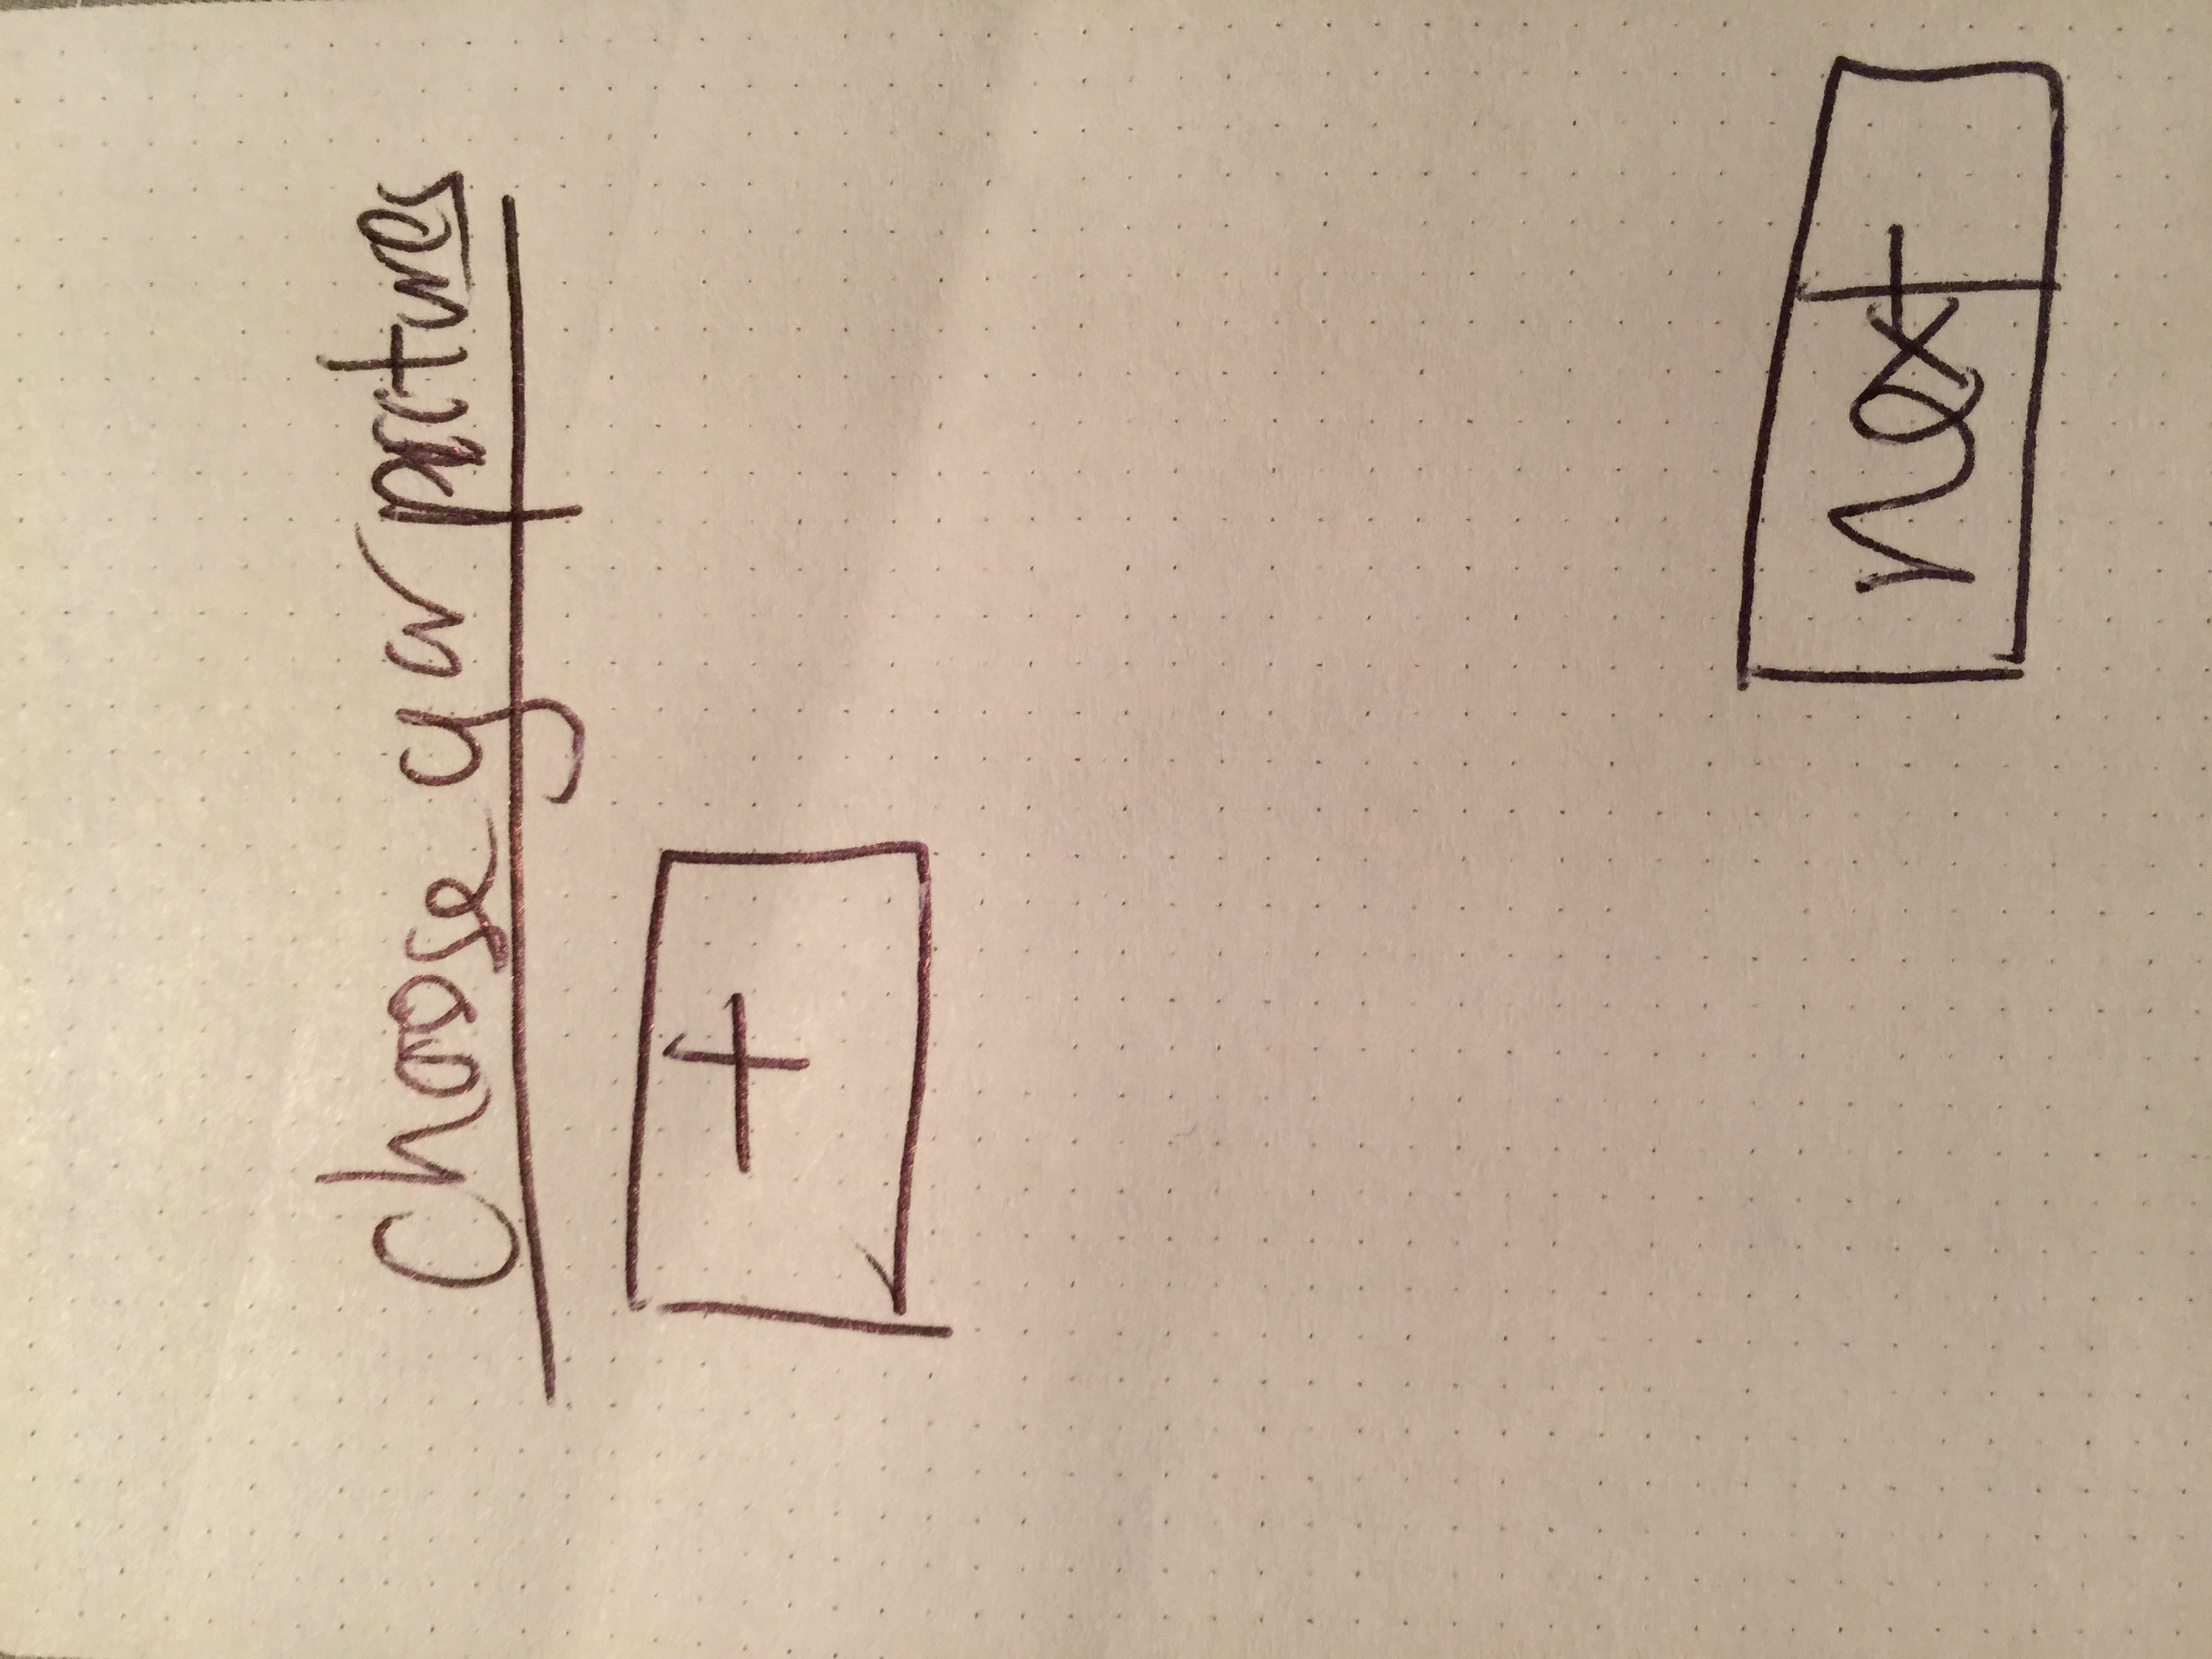 choose your pictures
+
next